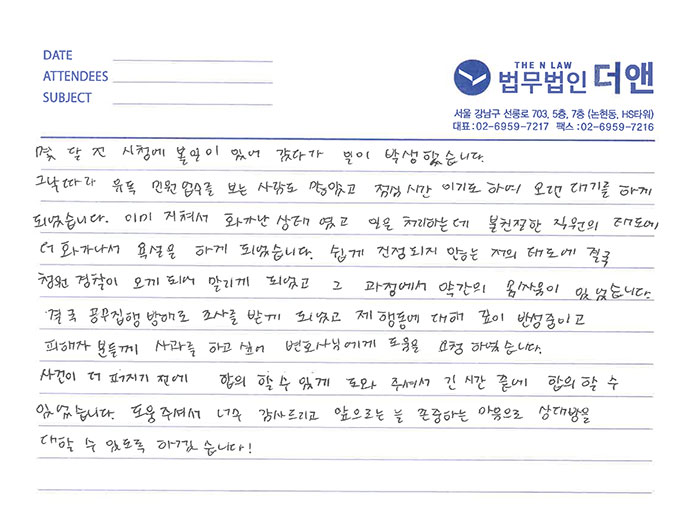 DATE
ATTENDEES
SUBJECT
THE N LAW
법무법인 더앤
서울 강남구 선릉로 703, 5층, 7층 (논현동, HS타워)
대표:02-6959-7217 팩스:02-6959-7216
몇 달 전 시청에 볼일이 있어 갔다가 일이 발생했습니다.
그날따라 유독 민원업무를 보는 사람도 많았고 점심시간 이기도 하여 오랜 대기를 하게
되었습니다. 이미 지쳐서 화가난 상태 였고 일을 처리하는데 불친절한 직원의 태도에
더 화가나서 욕설을 하게 되었습니다. 쉽게 진정되지 않는 저의 태도에 결국
청원 경찰이 오게 되어 말리게 되었고 그 과정에서 약간의 몸싸움이 있었습니다.
결국 공무집행 방해로 조사를 받게 되었고 제 행동에 대해 깊이 반성중이고
피해자 분들께 사과를 하고 싶어 변호사님에게 도움을 요청 하였습니다.
사건이 더 퍼지기 전에 합의 할 수 있게 도와 주셔서 긴 시간 끝에 합의 할 수
있었습니다. 도움주셔서 너무 감사드리고 앞으로는 늘 존중하는 마음으로 상대방을
대할 수 있도록 하겠습니다!